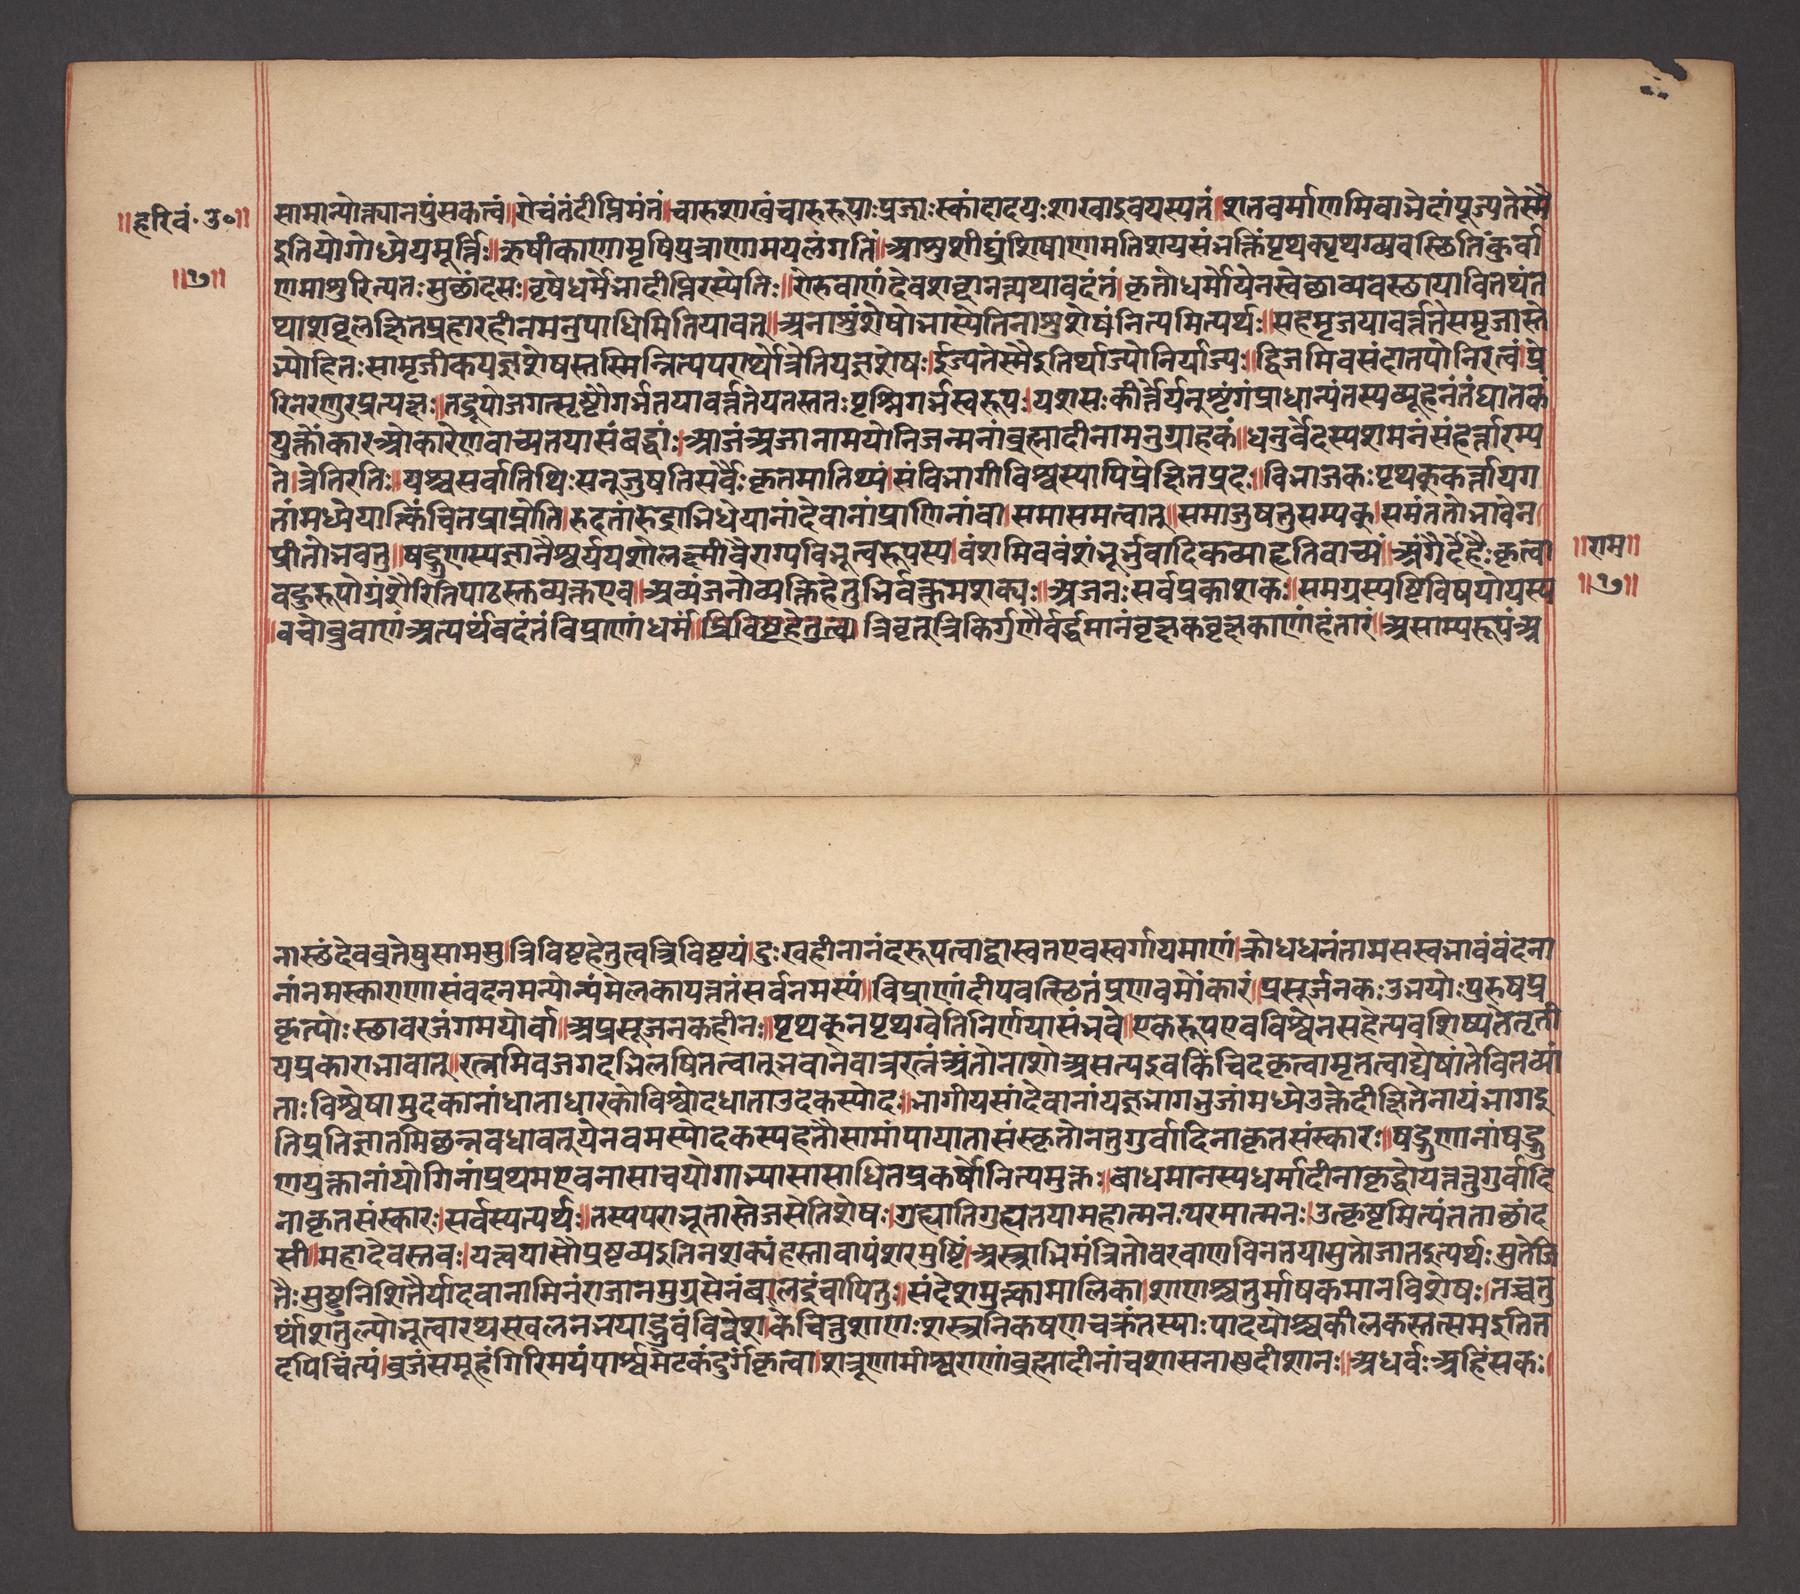 ॥हरिवं॰उ॰॥
॥७॥
सामान्योक्त्यानपुंसकत्वं॥रोचंतंदीप्तिमंतं॥चारुशाखंचारुरूपाःप्रजाःस्कांदादयःशाखाइवयस्यतं॥शतवर्माणमिवाभेदांपूज्यतेस्मै
इतियोगोध्येयमूर्त्तिः॥रुषीकाणामृषिपुत्राणामयलंगतिं॥आशुशीघ्रंशिषाणामतिशयसंभक्तिंपृथक्पृथग्व्यवस्थितिंकुर्वा
णमाशुरित्यतःसुछांदसः।वृषेधर्मेभादीप्तिरस्येतिः॥रोरुवाणंदेवशब्दानन्यथावदंतं।कृतोधर्मोयेनस्वेछाव्यवस्थायावितथंत
थाशबलक्षितप्रहारहीनमनुपाधिमितियावत्॥अनाशुंशेषोभास्येतिनाशुशेषंनित्यमित्यर्थः॥सहमृजयावर्त्ततेसमृजास्ते
भ्योहितःसामृजीकयज्ञशेषस्तस्मिन्नित्यपरार्थोत्रेतियज्ञशेषः।ईज्यतेस्मैइतिर्थाज्योनिर्याज्यः॥द्विजमिवसंदातपोनिरत्वं।प्रे
रितेरणुरप्रत्यक्षः॥तद्रूपोजगत्सृष्टौगर्भतयावर्त्ततेयतस्ततःपृश्निगर्भस्वरूप।यशसःकीर्त्तेर्यनुशृंगंप्राधान्यंतस्यव्यूहनंतंघातकं
युक्तोंकारओकारेणवाच्यतयासंबद्धां।आजंअजानामयोनिजन्मनांब्रह्मादीनामनुग्राहकं॥धनुर्वेदस्यशमनंसंहर्त्तारम्प
ते।त्रेतिरतिः॥यश्चसर्वातिथिःसनुजुषतिसर्वैःकृतमातिथ्यं।संविभागीविश्वस्यापिप्रेक्षितप्रदः॥विभाजकःपृथक्कर्त्तायग
तांमध्येयात्किंचितप्राप्नोति।रुदतांरुद्राभिधेयानांदेवानांप्राणिनांवा।समासमत्वात्॥समाजुषतुसम्यक्।समंततोभावेन
प्रीतोभवतु॥षङ्गुणस्यज्ञानैश्वर्ययशोलक्ष्मीवैराग्यविभूत्वरूपस्य।वंशमिववंशंभूर्भुवादिकव्याहृतिवाच्यं॥अंगैर्देहैःकृत्वा
वहुरूपोग्रंशैरितिपाठस्तव्यक्तएव॥अव्यंजनोव्यक्तिहेतुभिर्वक्तुमशक्यः॥अजनःसर्वप्रकाशकः॥समग्रस्यष्टिविषयोयस्य
वचोब्रुवाणंअत्यर्थवदंतंविप्राणांधर्मं॥त्रिविष्टहेतुत्व।त्रिवृतत्रिकिर्गुणैर्वर्द्धमानंवृक्षकवृक्षकाणांहंतारं॥असाम्यरूपंअ
॥राम॥
॥७॥
नास्थंदेवव्रतेषुसाममु।त्रिविष्टहेतुत्वत्रिविष्टयं।दुःखहीनानंदरूपत्वाद्वास्वतएवस्वर्गायमाणं।क्रोधधनंतामसस्वभावंवंदेना
नांनमस्काराणासंवदनमन्योन्यंमेलकायत्नतंसर्वनमस्यं॥विप्राणंदीपवत्स्थितंप्रणवमोंकारं।प्रसूर्जनकःउभयोःपुरुषप्र
कृत्योःस्थावरजंगमयोर्वा॥अप्रसूजनकहीनः॥पृथक्नपृथग्वेतिनिर्णयासंभवे॥एकरूपएवविश्वेनसहेत्यवशिष्यंतेतृती
यप्रकाराभावात्॥रत्नमिवजगदभिलषितत्वात्भवानेवात्ररत्नंअंतोनाशोअसत्यइवकिंचिदकृत्वामृतत्वाद्येषांतेवितथां
ताःविश्वेषामुदकानांधाताधारकोविश्वोदधाताउदेकस्योदः॥भागीयसांदेवानांयज्ञभागभुजांमध्येउक्तेदीक्षितेनायंभागइ
तिप्रतिज्ञातमिछन्नवधावतुयेनवमस्योदकस्यहर्तौसामांपायातासंस्कृतोनतुगुर्वादिनाकृतसंस्कारः॥षङ्गुणानांषङ्गु
णयुक्तानांयोगिनांप्रथमएवनासाचयोगाभ्यासासाधितप्रकर्षोनित्यमुक्तः॥बोधमानस्यधर्मादीनाकृद्बोयन्नतुगुर्वादि
नाकृतसंस्कारः।सर्वस्यत्यर्थः॥तस्यपराभूतास्तेजसेतिशेषः।गुह्यातिगुह्यतयामहात्मनःपरमात्मनः।उत्कृष्टमित्यंतताछांद
सी॥महादेवस्तवः।यत्नयासौप्रष्टव्यइतिनशक्यंहस्तावापंशरमुष्टिं।अस्त्राभिमंत्रितोवरवाणविनतयासुतोजातइत्यर्थःसुतेजि
तैःसुष्टुनिशितैर्यादवानामिनंराजानमुग्रसेनंबालदेवंवापितु॥संदेशमुत्कामालिका।शाणश्चतुर्माषकमानविशेषः।तच्चतु
र्थांशतुल्योभूत्वारथसंवलनभयाद्भुवंविवेश।केचित्तुशाणःशस्त्रनिकषणचक्रंतस्याःपादयोश्चकीलकस्तत्समइतित
दपिचिंत्यं।व्रजंसमूहंगिरिमयंपार्श्वमेटकंदुर्गंकृत्वा।शत्रूणामीश्वराणांब्रह्मादीनांचशासनाद्यदीशानः॥अधर्वःअहिंसकः।